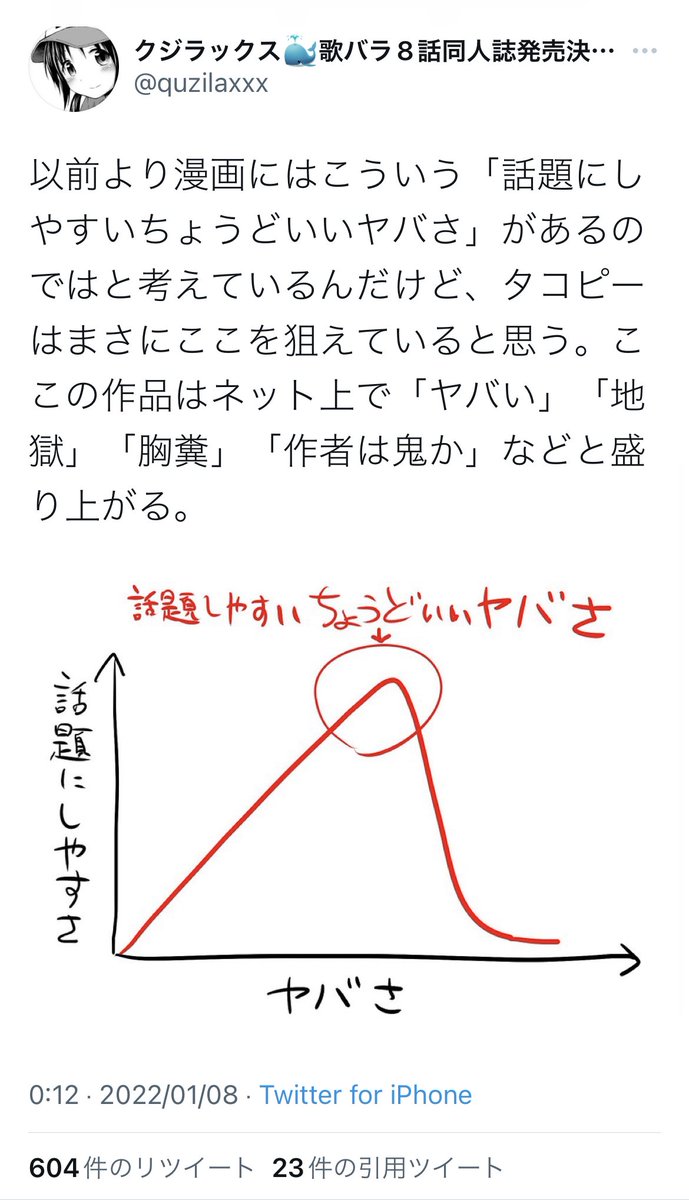 クジラックス🐳歌バラ８話同人誌発売決…
@quzilaxxx
以前より漫画にはこういう「話題にし
やすいちょうどいいヤバさ」があるの
ではと考えているんだけど、タコピー
はまさにここを狙えていると思う。こ
この作品はネット上で「ヤバい」「地
獄」「胸糞」「作者は鬼か」などと盛
り上がる。
話題しやすいちょうどいいヤバさ
話題にしやすさ
ヤバさ
0:12 · 2022/01/08 · Twitter for iPhone
604件のリツイート 23件の引用ツイート